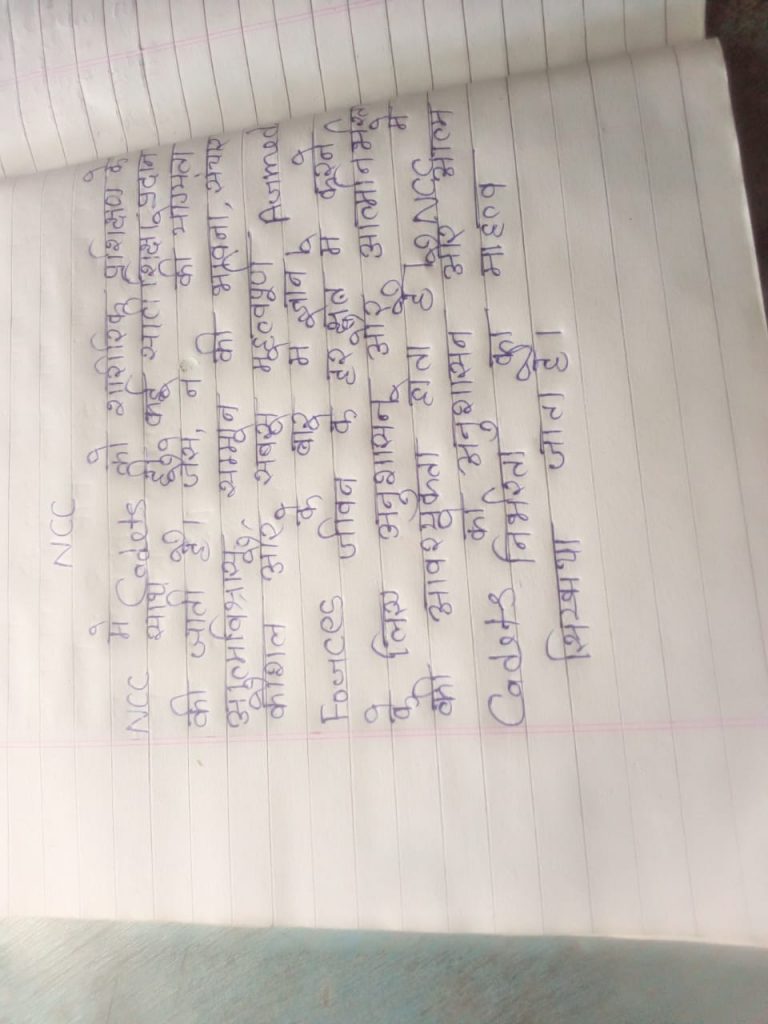 NCC
NCC मे Cadets को शारीरिक प्रशिक्षण के
साथ ही कई सारी शिक्षा प्रदान
की जाती है। जैसे, न की योग्यता
आत्मविश्वास, सम्मान की भावना, संचार
कौशल और सबसे महत्वपूर्ण Armed
Forces के बारे म ज्ञान।
जीवन के हर क्षेत्र म करने
के लिए अनुशासन और आत्मनिर्भरता
की आवश्यकता होती है। NCC मे
Cadets को अनुशासन और आत्म
निर्भरता का माहत्व
सिखाया जाता है।